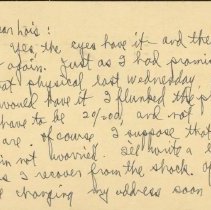 ear Lois:
Yes, the eyes have it and the
again. Just as I had promis
at physical last Wednesday
would have it I flunked the p
have to be 20/20, and not
are. Of course I suppose that
in not worried. Ill write a l
as I recover from the shock.
be changing my address soon